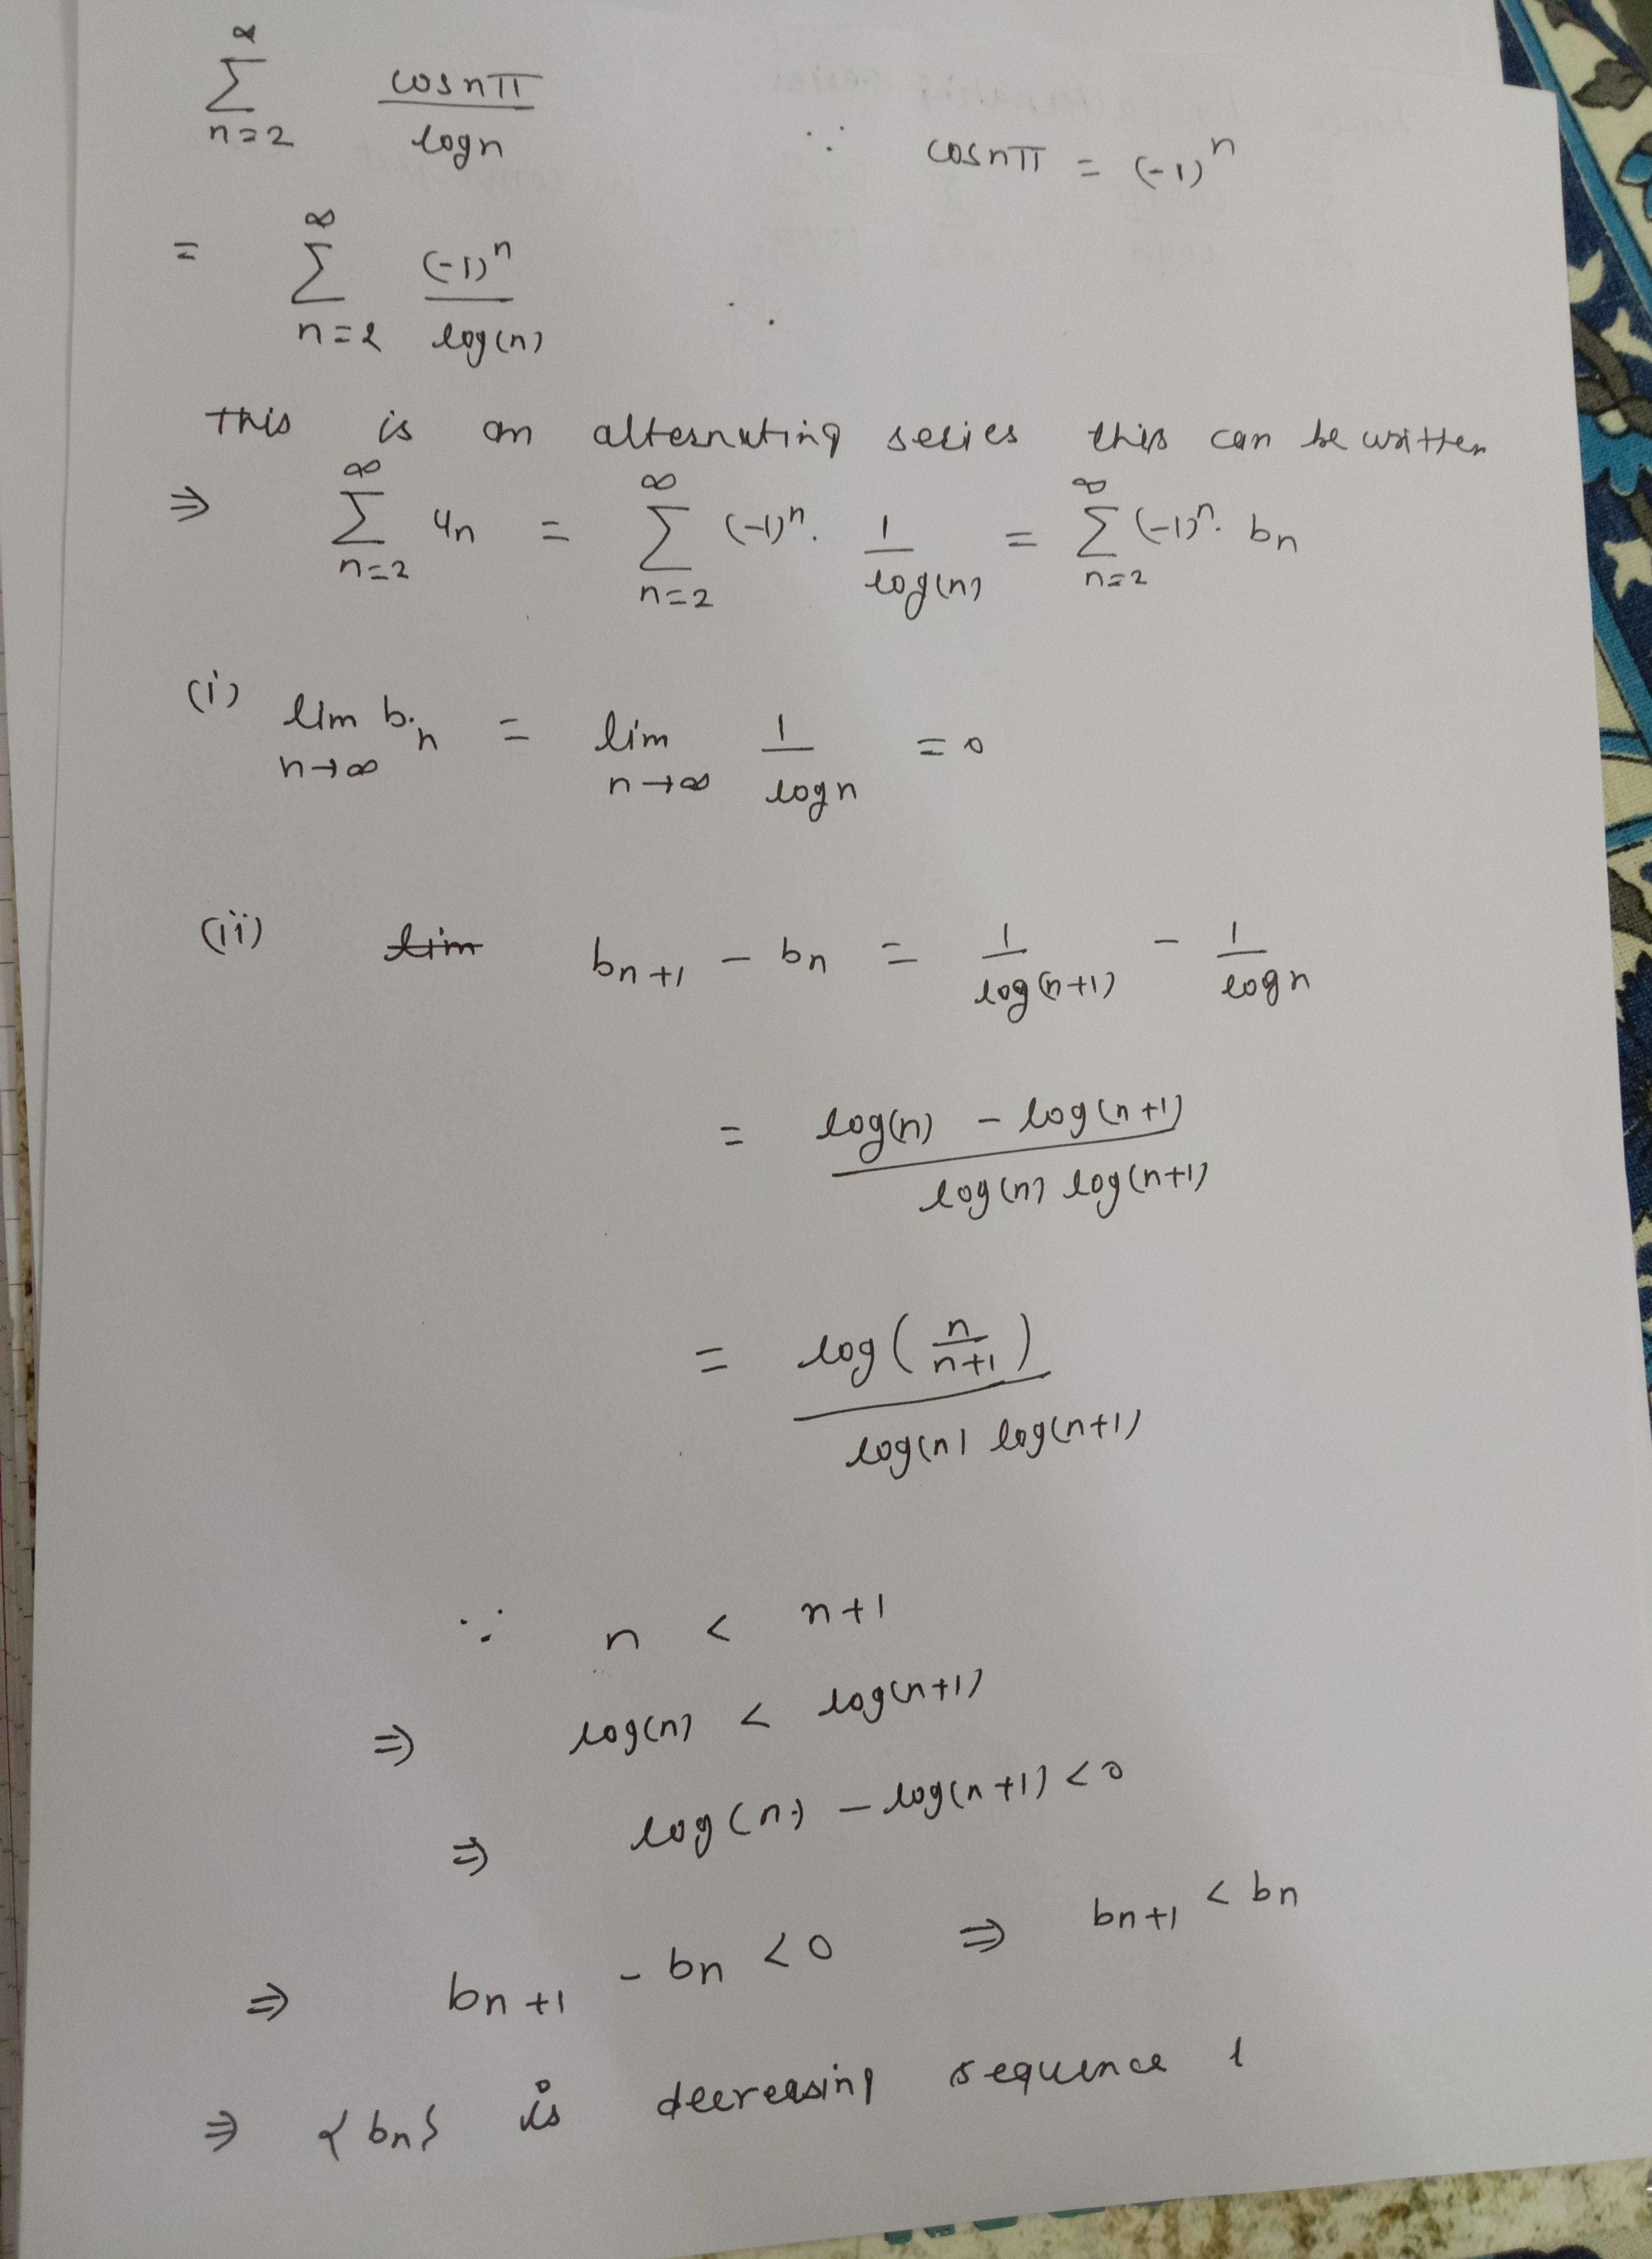 ∞
Σ cosnπ / logn ∵ cosnπ = (-1)ⁿ
n=2
∞
= Σ (-1)ⁿ / log(n)
n=2
This is an alternating series this can be written
∞ ∞ ∞
⇒ Σ un = Σ (-1)ⁿ. 1 / log(n) = Σ (-1)ⁿ. bn
n=2 n=2 n=2
(i) lim bn = lim 1 / logn = 0
n→∞ n→∞
(ii) bn+1 - bn = 1 / log(n+1) - 1 / logn
= log(n) - log(n+1) / log(n) log(n+1)
= log(n / n+1) / log(n) log(n+1)
∵ n < n+1
⇒ log(n) < log(n+1)
⇒ log(n) - log(n+1) < 0
⇒ bn+1 - bn < 0 ⇒ bn+1 < bn
⇒ {bn} is decreasing sequence